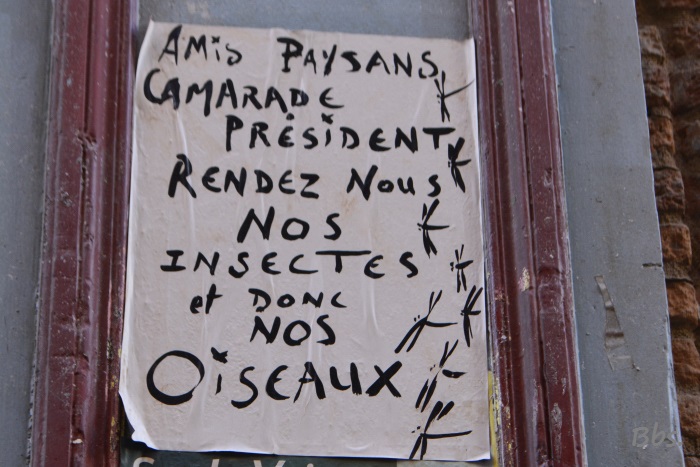 AMiS PAYSANS
CAMARADE
PRÉSiDENT
RENDEZ NOUS
NOS
INSECTES
et DONC
NOS
OiSEAUX
Bbs